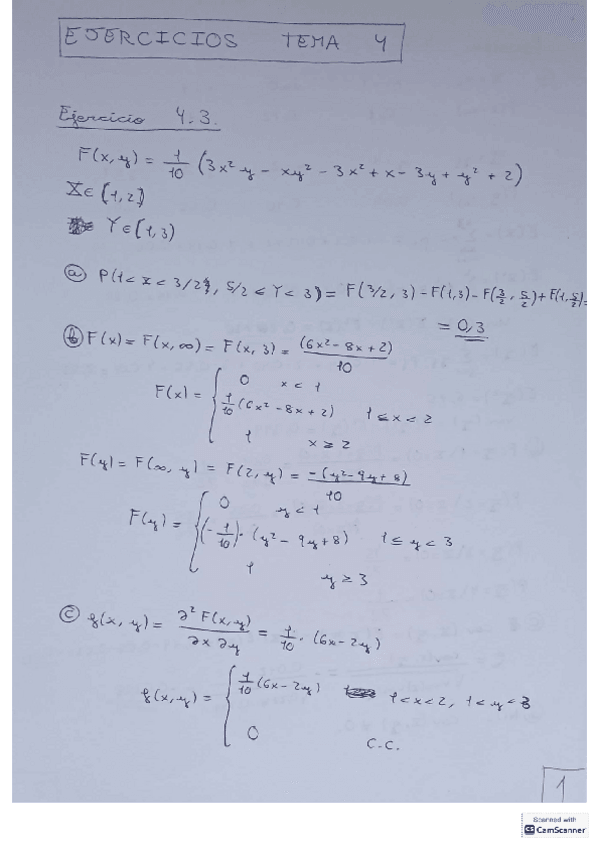 EJERCICIOS TEMA 4
Ejercicio 4.3.
F(x,y) = 1/10 (3x²y - xy² - 3x² + x - 3y + y² + 2)
X∈[1,2]
Y∈[1,3)
ⓐ P(1<x<3/2, 5/2<Y<3) = F(3/2, 3) - F(1,3) - F(3/2, 5/2) + F(1, 5/2) =
= 0,3
ⓑ F(x) = F(x,∞) = F(x,3) = (6x² - 8x + 2)/10
F(x) = { 0 x < 1
1/10 (6x² - 8x + 2) 1 ≤ x < 2
1 x ≥ 2
F(y) = F(∞, y) = F(2, y) = -(y² - 9y + 8)/10
F(y) = { 0 y < 1
(-1/10) · (y² - 9y + 8) 1 ≤ y < 3
1 y ≥ 3
ⓒ f(x, y) = ∂² F(x,y)/∂x ∂y = 1/10 · (6x - 2y)
f(x,y) = { 1/10 (6x - 2y) 1<x<2, 1<y<3
0 C.C.
1
Scanned with
CS CamScanner